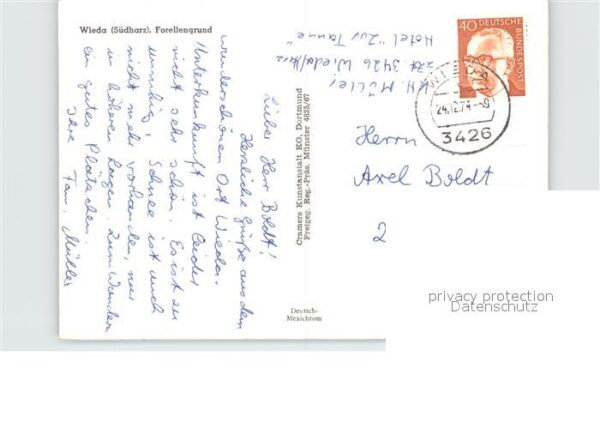 Wieda (Südharz), Forellengrund
Lieber Herr Boldt!
Herzliche Grüße aus dem
wunderschönen Ort Wieda.
Unterkunkunft ist leider
nicht sehr schön. Es ist zu
unruhig, Schnee ist auch
nicht mehr vorhanden, nur
in höheren Lagen. Zum Wandern
ein gutes Plätzchen.
Ihre Fam. Müller
Cramers Kunstanstalt KG, Dortmund
Freigeg. Reg.-Präs. Münster 4825/67
Deutsch-
Mexichrom
H. Müller
zzt. 3426 Wieda/Harz
Hotel "Zur Tanne"
40 DEUTSCHE
BUNDESPOST
3426
Herrn
Axel Boldt
2
privacy protection
Datenschutz